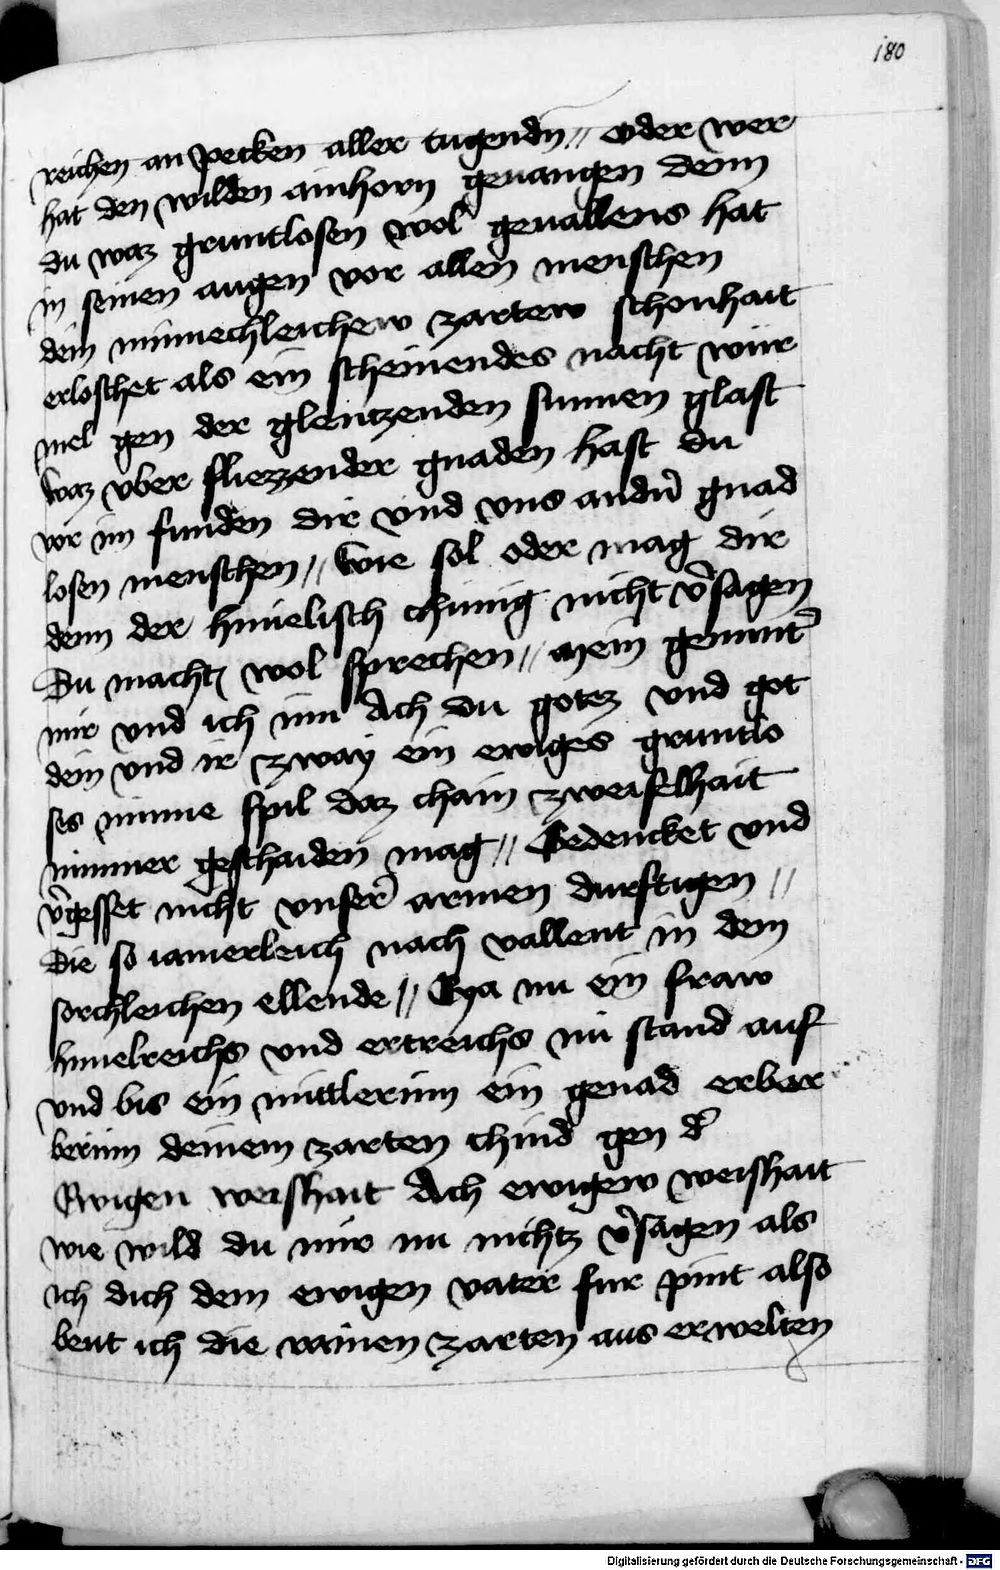 180
reichen anpecken aller tugendn // Oder wer
hat den wilden ainhorn geuangen denn
du waz gruntlosen wol geuallens hat
in seinen augen vor allen menschen
dein minnechleichew zartew schonhait
erloschet als ein scheinendes nacht wür
mel gen der glentzenden sunnen glast
waz vber fliezzender gnaden hast du
vor im funden dir vnd vns andn̄ gnad
losen menschen // wie sol oder mag dir
denn der himelisch chünig nicht v̉sagen
Du macht wol sprechen // mein gemint̉
mir vnd ich im Ach du gotz vnd got
dein vnd ir zway ein ewiges gruntlo
ses minne spil daz chain zweifelhait
nimmer geschaiden mag // Gedencket vnd
v̉gesset nicht vnser̉ armen durftigen //
die so iamerleich nach vallent in dem
sorchleichen ellende // Eya nu ein fraw
himelreichs vnd ertreichs nu stand auf
vnd bis ein mittlerinn ein genad erber
berinn deinem zarten chind gen d̉
Ewigen weishait Ach ewigew weishait
wie wild du mir nu nichtz v̉sagen als
ich dich dem ewigen vater fur pint also
beut ich die rainen zarten aus erwelten
Digitalisierung gefördert durch die Deutsche Forschungsgemeinschaft - DFG